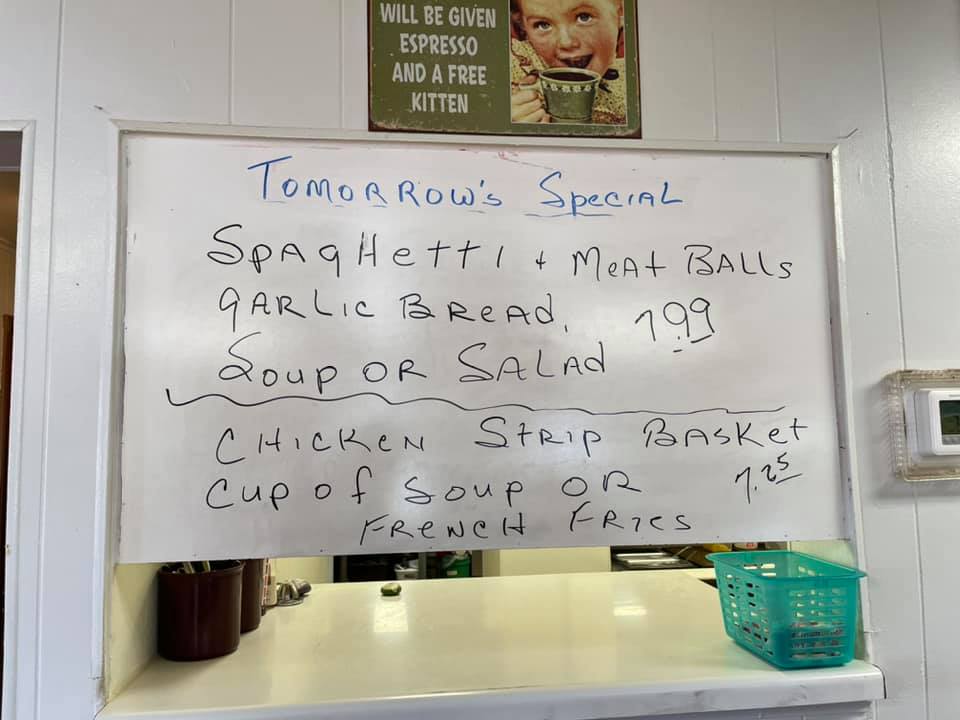 WILL BE GIVEN
ESPRESSO
AND A FREE
KITTEN
TOMORROW'S SPECIAL
SPAGHETTI + MEAT BALLS
GARLIC BREAD, 7.99
SOUP OR SALAD
CHICKEN STRIP BASKET
CUP OF SOUP OR 7.25
FRENCH FRIES